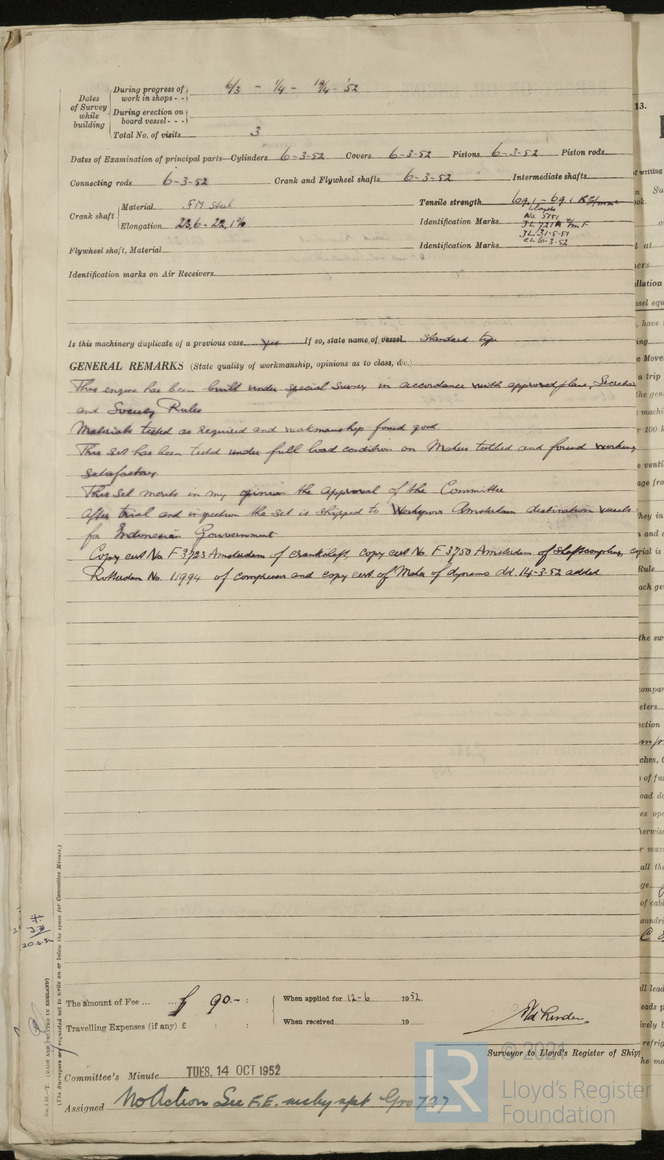 Dates of Survey while building
During progress of work in shops - - 6/3 - 1/4 - 19/4 - '52
During erection on board vessel - - -
Total No. of visits 3
Dates of Examination of principal parts—Cylinders 6-3-52 Covers 6-3-52 Pistons 6-3-52 Piston rods
Connecting rods 6-3-52 Crank and Flywheel shafts 6-3-52 Intermediate shafts
Crank shaft Material SM Steel Tensile strength 69,1 - 69,1 KG/mm²
Elongation 23,6 - 22,1% Identification Marks Lloyds
No 5151
JL 31-5-51
CL 6-3-52
Flywheel shaft, Material Identification Marks
Identification marks on Air Receivers
Is this machinery duplicate of a previous case yes If so, state name of vessel Standard type
GENERAL REMARKS (State quality of workmanship, opinions as to class, &c.)
This engine has been built under special survey in accordance with approved plans, Secretar
and Society Rules
Materials tested as required and workmanship found good.
This set has been tested under full load condition on Makers testbed and found working
satisfactory.
This set merits in my opinion the approval of the Committee
After trial and inspection the set is shipped to Amsterdam destination vessels
for Indonesian Gouvernment
Copy cert No F 3723 Amsterdam of crankshaft, copy cert No F 3750 Amsterdam of shaftcoupling,
Rotterdam No. 11994 of compressor and copy cert of Maker of dynamo dd. 14-3-52 added
The amount of Fee ... ... £ 90.- : When applied for 12-6 1952
Travelling Expenses (if any) £ : : When received 19
Surveyor to Lloyd's Register of Ship
Committee's Minute TUES. 14 OCT 1952
Assigned No Action See F.E. mchy rpt
(The Surveyors are requested not to write on or below the space for Committee Minute.)
(MADE AND PRINTED IN ENGLAND)
20.6.52
© 2021
LR
Lloyd's Register
Foundation